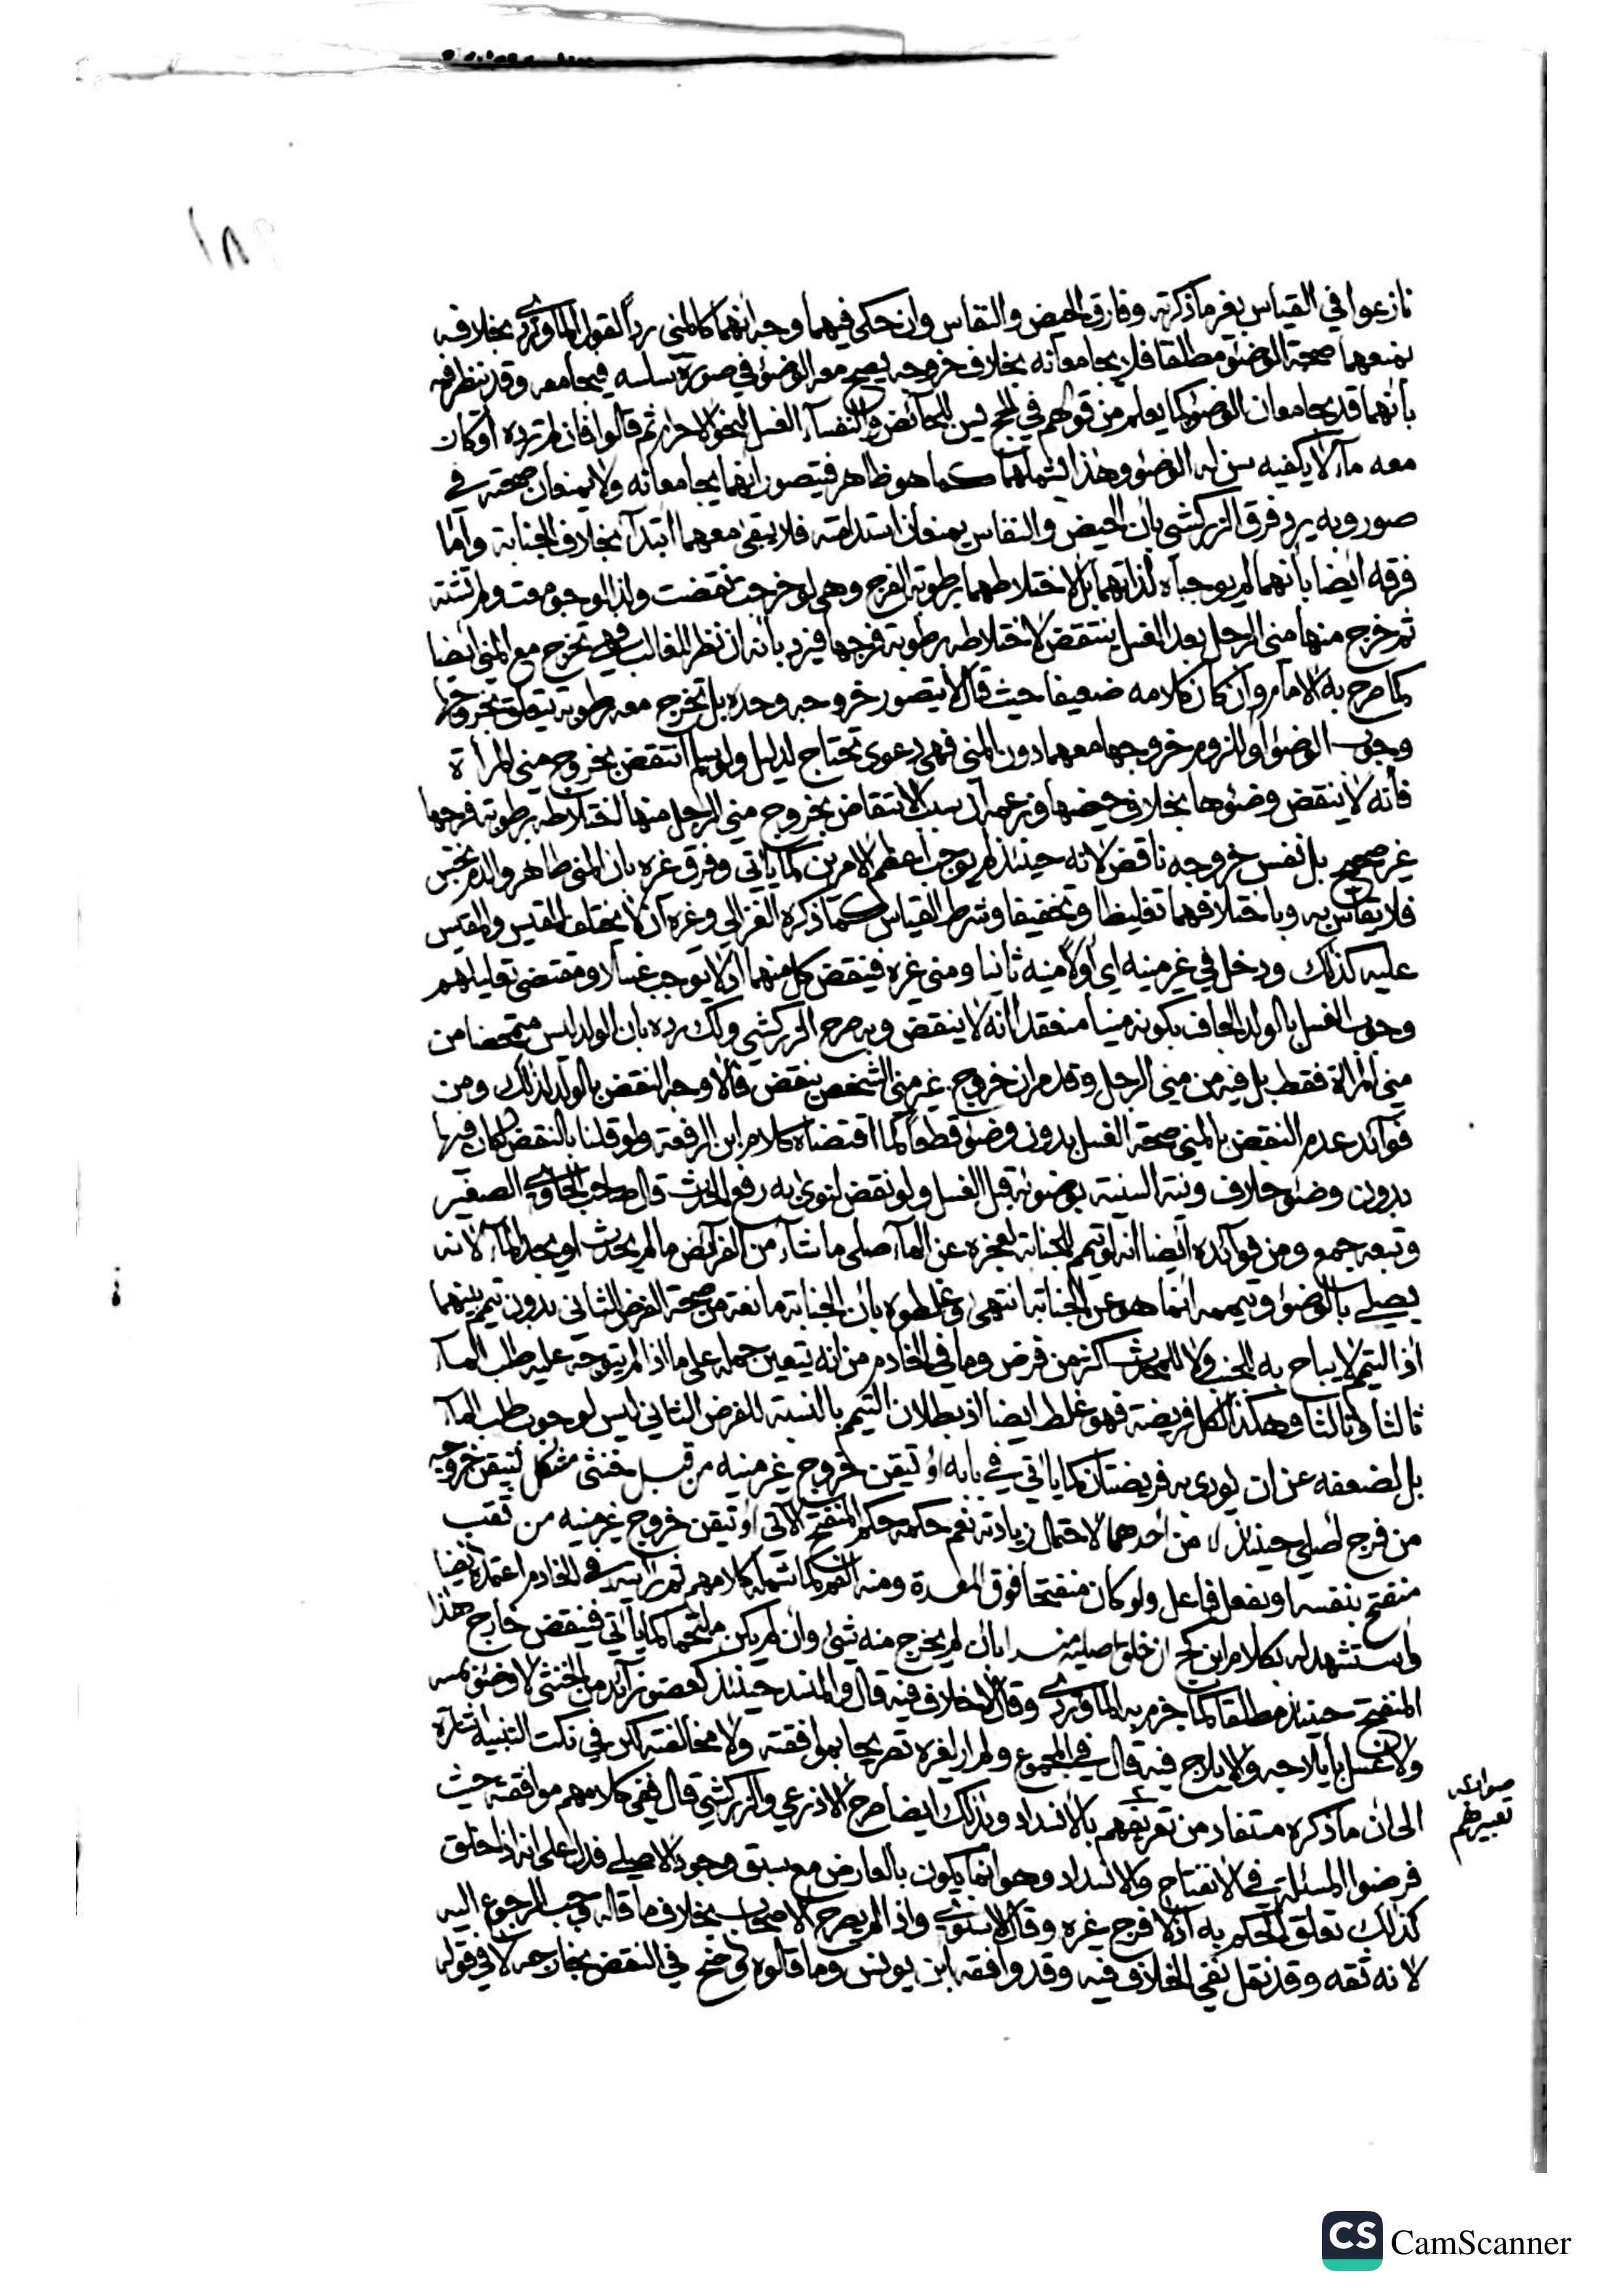 ١٨٩
نازعوا في القياس بغير ما ذكرته وفارق الحيض والنفاس وان حكى فيهما وجه انهما كالمني رداً لقول الماوردي بخلافه
بمنعهما صحة الوضوء مطلقا فلا يجامعانه بخلاف خروجه يصح معه الوضوء في صورة سلسه فيجامعه وقد ينظر فيه
بأنهما قد يجامعان الوضوء كما يعلم من قولهم في الحج يسن للحائض والنفسآء الغسل لنحو الاحرام ثم قالوا فان لم ترده أو كان
معه مآء لا يكفيه سن له الوضوء وهذا يشملهما كما هو ظاهر فيتصور انهما يجامعانه ولا يمنعان صحته في
صور وبه يرد فرق الزركشي بان الحيض والنفاس يمنعان استدامته فلا يبقى معهما ابتدآء بخلاف الجنابة وأما
فرقه ايضا بأنهما لم يوجباه لذاتهما بل لاختلاطهما برطوبة الفرج وهي لو خرجت نقضت ولذا لو جومعت ولم تشته
ثم خرج منها مني الرجل بعد الغسل ينتقض لاختلاطه برطوبة فرجها فيرد بانه ان نظر للغالب فهي تخرج مع المني ايضا
كما صرح به الامام وان كان كلامه ضعيفا حيث قال لا يتصور خروجه وحده بل تخرج معه رطوبة يتعلق بخروجها
وجوب الوضوء أو للزوم خروجها معهما دون المني فهي دعوى تحتاج لدليل ولو سلم انتقض بخروج مني المرأة
فأنه لا ينقض وضوءها بخلاف حيضها وزعمه ان سبب الانتقاض بخروج مني الرجل منها اختلاطه برطوبة فرجها
غير صحيح بل نفس خروجه ناقض لانه حينئذ لم يوجب اعظم الامرين كما يأتي وفرق غيره بان المني طاهر والدم نجس
فلا يقاس به وباختلافهما تغليظا وتخفيفا وشرط القياس كما ذكره الغزالي وغيره ان لا يختلف المقيس والمقيس
عليه كذلك ودخل في غير منيه اي أولا منيه ثانيا ومني غيره فينقض كل منهما اذ لا يوجب غسلا ومقتضى تعليلهم
وجوب الغسل بالولد الجاف بكونه منيا منعقدا انه لا ينقض وبه صرح الزركشي ولك رده بان الولد ليس متمحضا من
مني المرأة فقط بل فيه من مني الرجل وقد مر ان خروج غير مني الشخص ينقض فالاوجه النقض بالولد لذلك ومن
فوآئد عدم النقض بالمني صحة الغسل بدون وضوء قطعا كما اقتضاه كلام ابن الرفعة ولو قلنا بالنقض لكان فيها
بدون وضوء خلاف ونية السنية بوضوئه قبل الغسل ولو نقض لنوى به رفع الحدث قال صاحب الحاوي الصغير
وتبعه جمع ومن فوآئده أيضا انه لو تيمم للجنابة لعجزه عن المآء صلى ما شآء من الفرآئض ما لم يحدث او يجد المآء لانه
يصلي بالوضوء وتيممه انما هو عن الجنابة انتهى وغلطوه بان الجنابة مانعة من صحة الفرض الثاني بدون تيمم بينهما
اذ التيمم لا يباح به للجنب ولا للمحدث اكثر من فرض وما في الخادم من انه يتعين حمله على ما اذا لم يتوجه عليه طلب المآء
ثانيا وثالثا وهكذا لكل فريضة فهو غلط ايضا اذ بطلان التيمم بالنسبة للفرض الثاني ليس لوجوب طلب المآء
بل لضعفه عن ان يؤدى به فريضتان كما يأتي في بابه أو تيقن خروج غير منيه من قبل خنثى مشكل لتيقن خروجه
من فرج اصلي حينئذ لا من احدهما لاحتمال زيادته نعم حكمه حكم المنفتح الآتي او تيقن خروج غير منيه من ثقب
منفتح بنفسه او بفعل فاعل ولو كان منفتحا فوق المعدة ومنه الفم كما شمله كلامهم ثم رأيته في الخادم اعتمده ايضا
واستشهد له بكلام ابن كج ان خلق اصليه منسدا بان لم يخرج منه شئ وان لم يكن ملتحما كما يأتي فينقض خارج هذا
المنفتح حينئذ مطلقا كما جزم به الماوردي وقال لا خلاف فيه قال والمنسد حينئذ كعضو زآئد من الخنثى لا وضوء بمسه
ولا غسل بايلاجه والايلاج فيه قال في المجموع ولم ار لغيره تصريحا بموافقته ولا مخالفته لكن في نكت التنبيه اشارة
الى ان ما ذكره مستفاد من تعريفهم بالانسداد وبذلك ايضا صرح الاذرعي والزركشي قال ففي كلامهم موافقته حيث
صوابه
تعبيرهم
فرضوا المسئلة في الانفتاح والانسداد وهو انما يكون بالعارض مع سبق وجود الاصلي فدل على انه اذا خلق
كذلك تعلق الحكم به اذ لا فرج غيره وقال الاسنوي واذا لم يصرح الاصحاب بخلاف ما قاله وجب الرجوع اليه
لانه ثقه وقد نقل نفي الخلاف فيه وقد وافقه ابن يونس وما قالوه واضح في النقض بخارجه لا في قوله
CS CamScanner